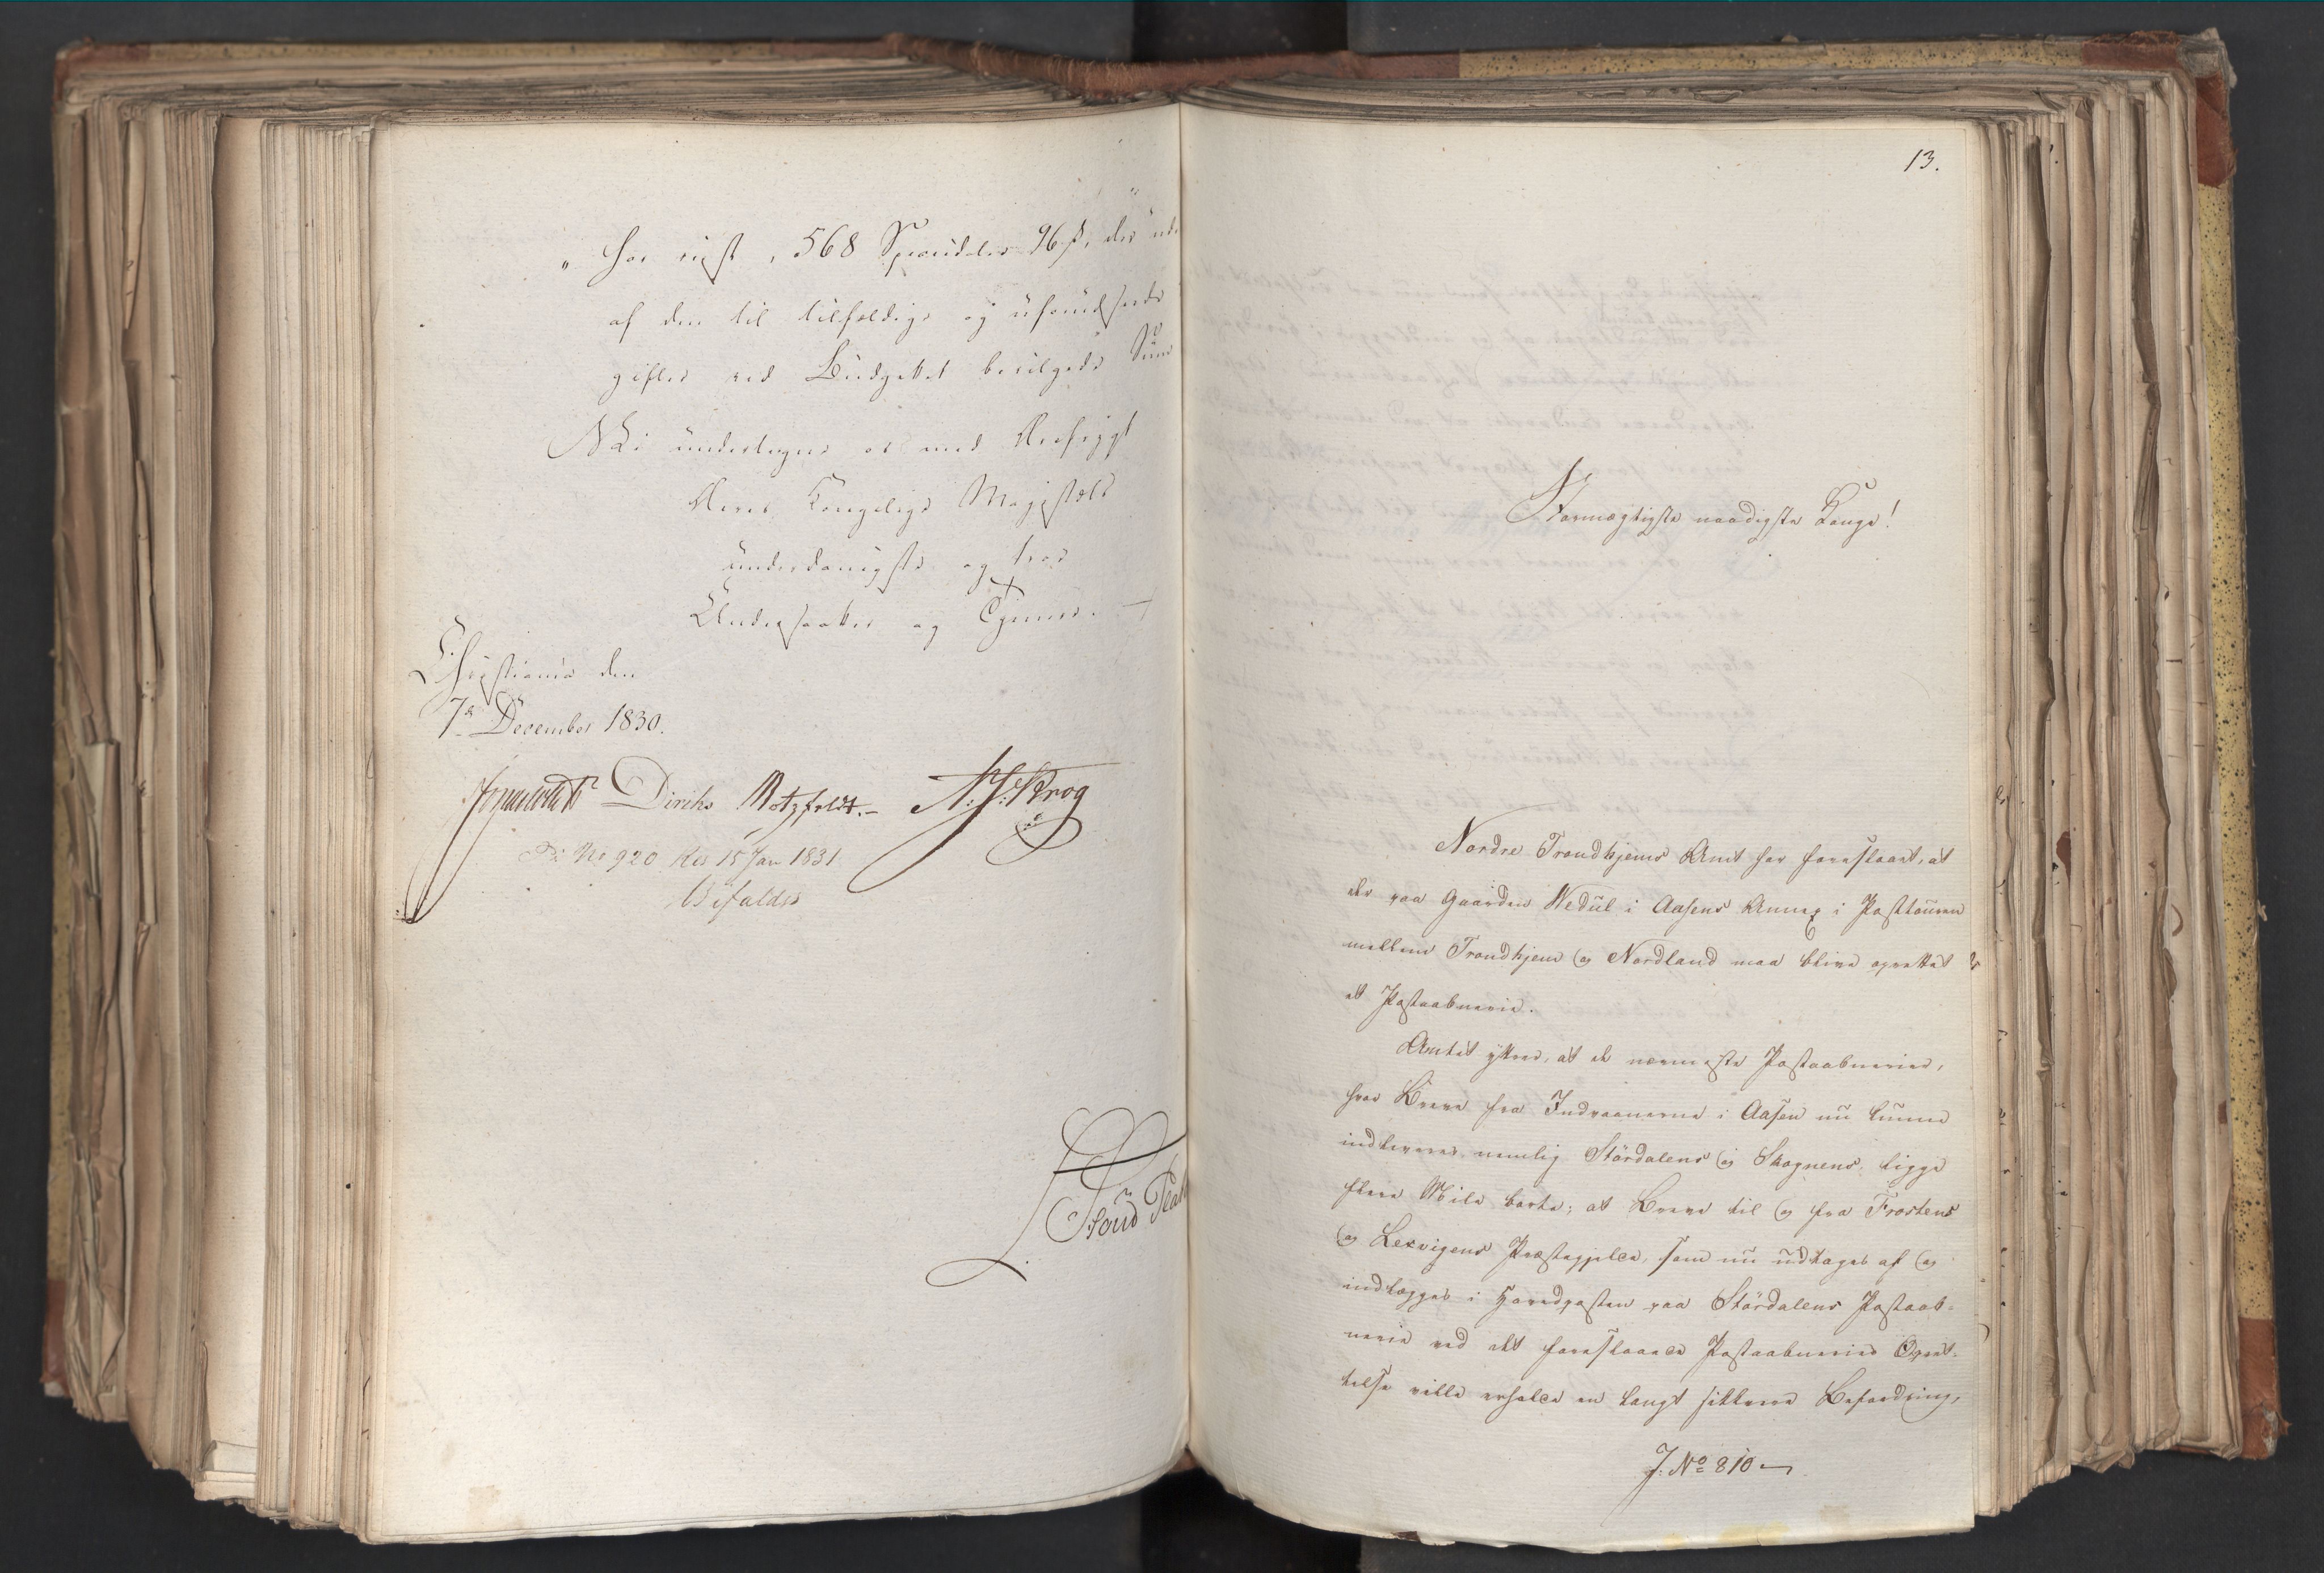 " har rigst, 568 Speciedaler 96 ß, der ude
af den til tilfældige og uforudseede
gifter ved Budgettet bevilgede Sum
Vi undertegne os med Ærefrygt
Deres Kongelige Majestæts
underdanigste og troe
Undersaatter og Tjenere.
Christiania den
7de December 1830.
Diriks Motzfeldt.- N. J. Krog
No 920 Res 15 Jan 1831
Bifaldes
13.
Stormægtigste naadigste Konge!
Nordre Trondhjems Amt har foreslaaet, at
der paa Gaarden Vedul i Aasens Annex i Posttouren
mellem Trondhjem og Nordland maa blive oprettet
et Postaabnerie.
Amtet yttrer, at de nærmeste Postaabnerier,
hvor Breve fra Indvaanerne i Aasen nu kunne
indleveres, nemlig Stördalens og Skognens, ligge
flere Mile borte; at Breve til og fra Frostens
og Lexvigens Præstegjelde, som nu udtages af og
indlægges i Hovedposten paa Stördalens Postaab-
nerie ved det foreslaaede Postaabneries Opret-
telse ville erholde en langt sikkrere Befordring,
J. No 810